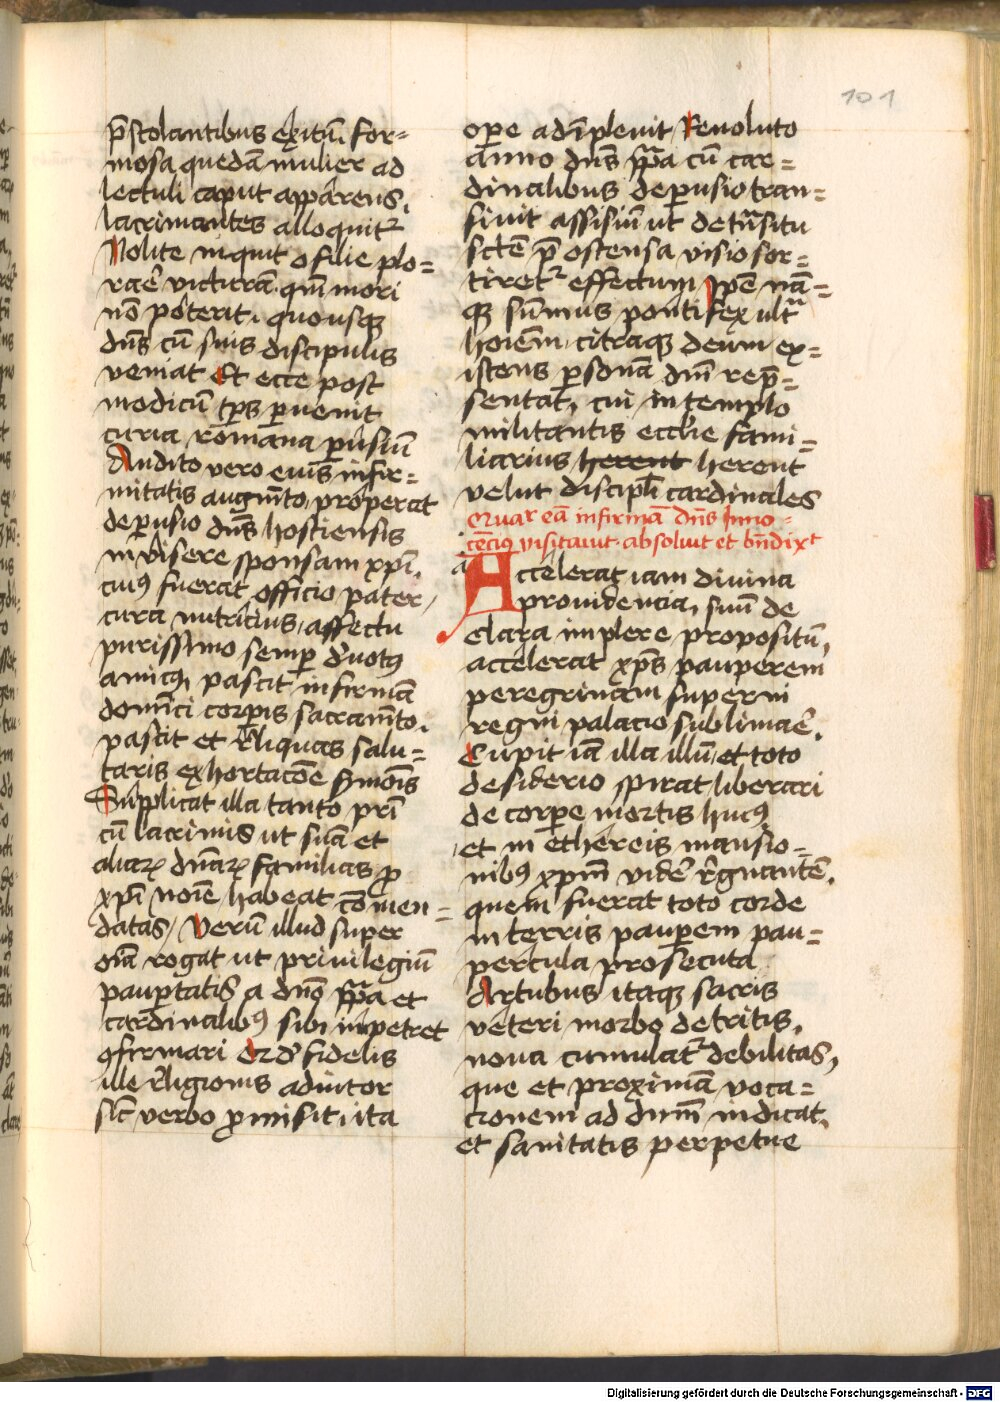 101
p̄stolantibus exitū. for=
mosa quedā mulier ad
lectuli caput apparens,
lacrimantes alloquitr᷑
Nolite inquit o filie plo=
rare victurā. qm̄ mori
nō poterit. quousqꝫ
dn̄s cū suis discipulis
veniat Et ecce post
modicū tp̄s peruenit
curia romana perusiū
Audito vero eius infir=
mitatis augm̄to, properat
de perusio dn̄s hostiensis
inuisere sponsam xp̄i.
cuiꝰ fuerat officio pater,
cura nutritius, affectu
purissimo semꝑ deuotꝰ
amicꝰ, pascit infirmā
domīci corꝑis sacram̄to,
pascit et reliquas salu=
taris exhortacōe s̄mōis
Supplicat illa tanto pr̄i
cū lacrimis ut suā et
aliaꝝ dn̄aꝝ familias ꝓ
xp̄i noīe habeat cōmen=
datas, Verū illud super
oīa rogat ut priuilegiū
pauꝑtatis a dn̄o pp̄a et
cardinalibꝰ sibi impetret
ꝯfirmari Qd̄ fidelis
ille religionis adiutor
sic̄ verbo ꝓmisit, ita
oꝑe adimpleuit Reuoluto
anno dn̄s pp̄a cū car=
dinalibus de perusio tran=
siuit assisiū ut de trā̄situ
scē p̄ ostensa visio sor=
tiretr᷑ effectum Ipse nā=
qꝫ sūmus pontifex ultra
hoīem, citraqꝫ deum ex=
istens ꝑsonā dn̄i rep̄=
sentat, cui in templo
militantis eccl̄ie fami=
liarius herent herent
velut discipl̄i cardinales
eā infirmā dn̄s Inno=
cēciꝰ visitauit absoluit et bn̄dixt
a
Accelerat iam diuina
prouidencia, suū de
Clara implere propositū,
accelerat xp̄s pauperem
peregrinam superni
regni palacio sublimare.
Cupit iā illa illū, et toto
desiderio spirat liberari
de corꝑe mortis huiꝰ
et in ethereis mansio=
nibꝰ xp̄m videre regnantē,
quem fuerat toto corde
in terris pauꝑem pau=
percula prosecuta
Artubus itaqꝫ sacris
veteri morbo detritis,
noua cumulatr᷑ debilitas,
que et proximā voca=
cionem ad dn̄m indicat,
et sanitatis perpetue
Digitalisierung gefördert durch die Deutsche Forschungsgemeinschaft - DFG